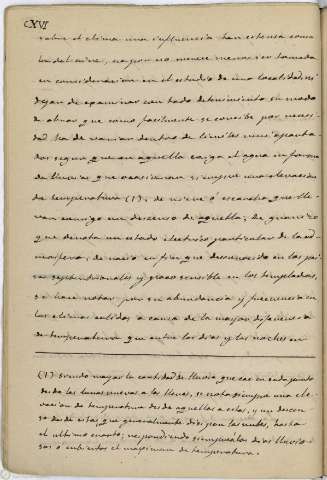 CXVI
sobre el clima una influencia tan estensa como
la del aire, no por eso merece menos ser tomada
en consideracion en el estudio de una localidad, ni
dejan de examinar con todo detenimiento su modo
de obrar que como facilmente se concibe por neces
dad ha de variar dentro de limites muy aparta
dos segun que en aquella caiga el agua en forma
de lluvia que ocasionan siempre una elevacion
de temperatura (1); de nieve ó escarcha que lle
van consigo un descenso de aquella; de granizo
que denota un estado electrico particular de la at
mosfera; de rocio en fin que desconocido en los pai
ses septentrionales y poco sensible en los templados,
se hace notar por su abundancia y frecuencia en
los climas calidos a causa de la mayor diferencia
de temperatura que entre los dias y las noches en
(1) Siendo mayor la cantidad de lluvia que cae en cada punto
desde las lunas nuevas a las llenas, se nota siempre una ele
vacion de temperatura desde aquellas a estas, y un descen
so desde estas que generalmente dirijen las nubes, hasta
el ultimo cuarto; respondiendo siempre los dias lluvio
sos ó cubiertos al maximum de temperatura.